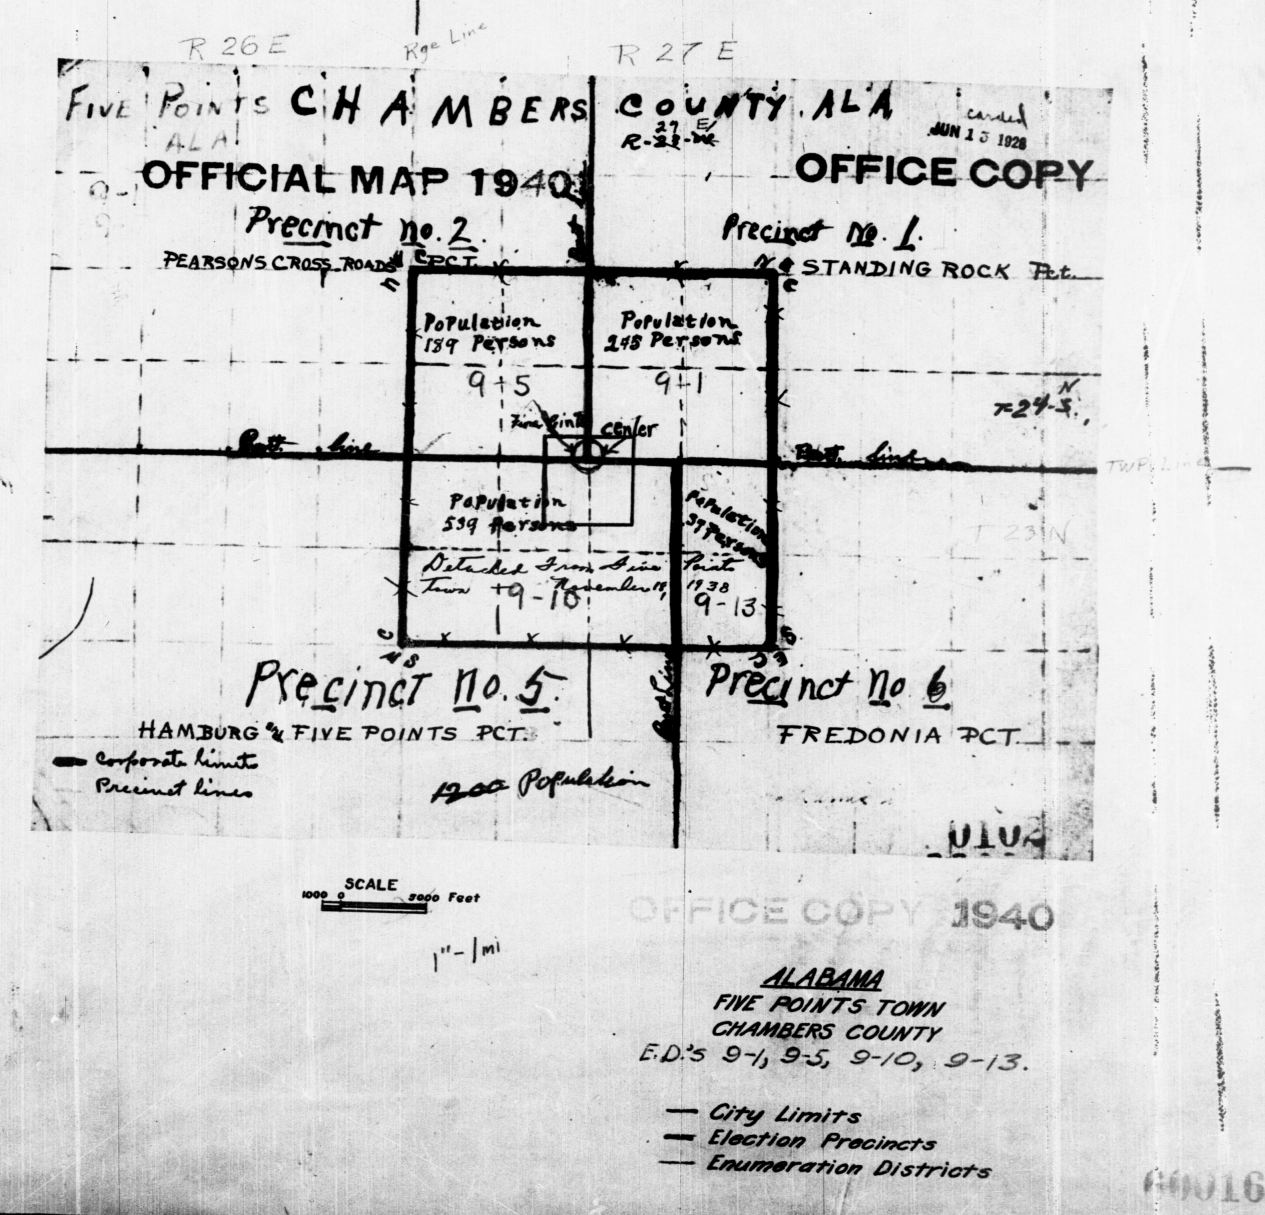 R 26 E Rge Line R 27 E
FIVE POINTS CHAMBERS COUNTY, ALA
ALA.
27 E
carded
JUN 13 1928
OFFICIAL MAP 1940
OFFICE COPY
Precinct no. 2.
Precinct No. 1.
PEARSONS CROSS ROADS PCT.
STANDING ROCK Pct.
Population
189 Persons
Population
245 Persons
9-5
9-1
N
T=24-S.
Five Points
center
Batt. line
Batt. line
TWP. Line
Population
539 Persons
Population
37 Persons
T 23 N
Detached From Five Points
Town November 19, 1938
9-10
9-13
Precinct no. 5.
Precinct no 6
HAMBURG & FIVE POINTS PCT.
FREDONIA PCT.
Corporate limits
Precinct lines
1200 Population
SCALE
1000 0 5000 Feet
1"-1 mi
OFFICE COPY 1940
ALABAMA
FIVE POINTS TOWN
CHAMBERS COUNTY
E.D.'s 9-1, 9-5, 9-10, 9-13.
City Limits
Election Precincts
Enumeration Districts